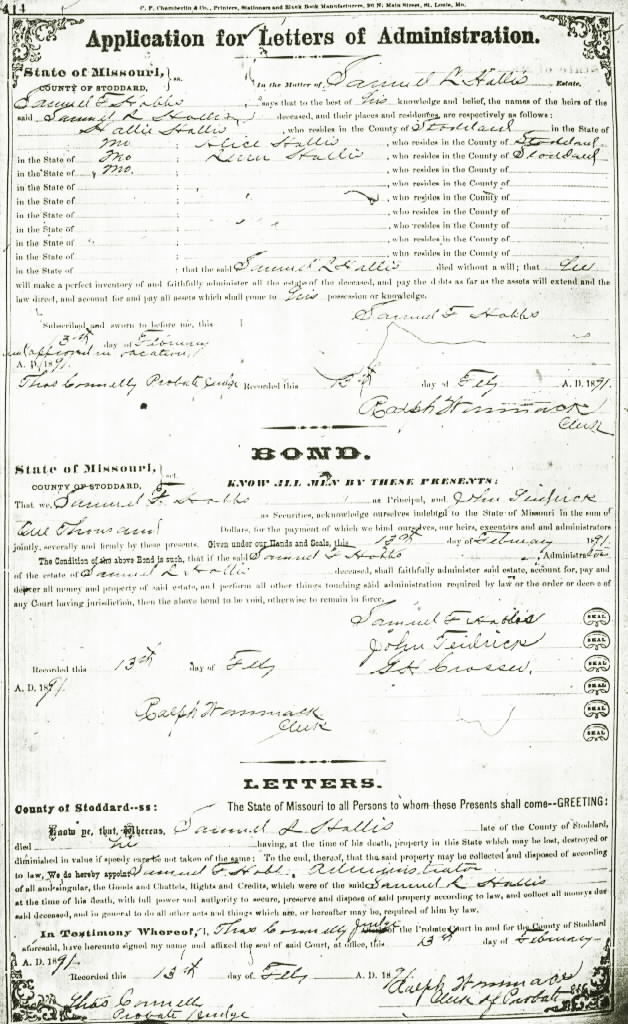 414
C. F. Chamberlin & Co., Printers, Stationers and Blank Book Manufacturers, 206 N. Main Street, St. Louis, Mo.
Application for Letters of Administration.
State of Missouri, ss.
COUNTY OF STODDARD,
In the Matter of Samuel L Hallis Estate.
Samuel F Hobbs says that to the best of his knowledge and belief, the names of the heirs of the
said Samuel L Hallis deceased, and their places and residences, are respectively as follows:
Hallie Hallis , who resides in the County of Stoddard in the State of
Mo Alice Hallis , who resides in the County of Stoddard
in the State of Mo Hallis , who resides in the County of Stoddard
in the State of Mo. ; , who resides in the County of
in the State of ; , who resides in the County of
in the State of ; , who resides in the County of
in the State of ; , who resides in the County of
in the State of ; , who resides in the County of
in the State of ; , who resides in the County of
in the State of ; , who resides in the County of
in the State of ; that the said Samuel L Hallis died without a will; that he
will make a perfect inventory of and faithfully administer all the estate of the deceased, and pay the debts as far as the assets will extend and the
law direct, and account for and pay all assets which shall come to his possession or knowledge.
Samuel F Hobbs
Subscribed and sworn to before me, this
day of February
and approved in vacation
A. D. 1891.
Thos Connelly Probate Judge Recorded this 13th day of Feby A. D. 1891.
Ralph Wommack
Clerk
BOND.
State of Missouri, sct.
COUNTY OF STODDARD,
KNOW ALL MEN BY THESE PRESENTS:
That we, Samuel F. Hobbs as Principal, and John
as Securities, acknowledge ourselves indebted to the State of Missouri in the sum of
Thousand Dollars, for the payment of which we bind ourselves, our heirs, executors and administrators
jointly, severally and firmly by these presents. Given under our Hands and Seals, this 13th day of February 1891.
The Condition of the above Bond is such, that if the said Samuel F Hobbs Administrator
of the estate of Samuel L Hallis deceased, shall faithfully administer said estate, account for, pay and
deliver all money and property of said estate, and perform all other things touching said administration required by law or the order or decree of
any Court having jurisdiction, then the above bond to be void, otherwise to remain in force.
Samuel F Hobbs SEAL
John SEAL
Recorded this 13th day of Feby SEAL
A. D. 1891. SEAL
Ralph Wommack SEAL
Clerk SEAL
LETTERS.
County of Stoddard--ss: The State of Missouri to all Persons to whom these Presents shall come--GREETING:
Know ye, that, Whereas, Samuel L Hallis late of the County of Stoddard,
died having, at the time of his death, property in this State which may be lost, destroyed or
diminished in value if speedy care be not taken of the same; To the end, therefore, that the said property may be collected and disposed of according
to law, We do hereby appoint Samuel F. Hobbs Administrator
of all and singular, the Goods and Chattels, Rights and Credits, which were of the said Samuel L Hallis
at the time of his death, with full power and authority to secure, preserve and dispose of said property according to law, and collect all moneys due
said deceased, and in general to do all other acts and things which are, or hereafter may be, required of him by law.
In Testimony Whereof, I Thos Connelly Judge of the Probate Court in and for the County of Stoddard
aforesaid, have hereunto signed my name and affixed the seal of said Court, at office, this 13th day of February
A. D. 1891.
Recorded this 13th day of Feby A. D. 1891
Ralph Wommack
Clerk of Probate
Thos Connelly
Probate Judge